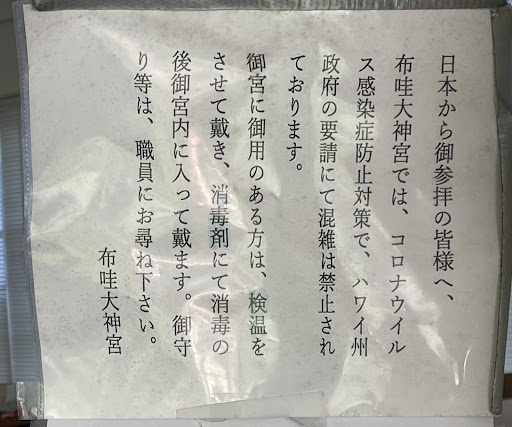 日本から御参拝の皆様へ、
布哇大神宮では、コロナウイル
ス感染症防止対策で、ハワイ州
政府の要請にて混雑は禁止され
ております。
御宮に御用のある方は、検温を
させて戴き、消毒剤にて消毒の
後御宮内に入って戴ます。御守
り等は、職員にお尋ね下さい。
布哇大神宮